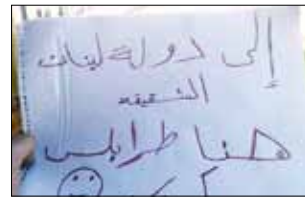 إلى دولة لبنان
الشقيقه
هنا طرابلس